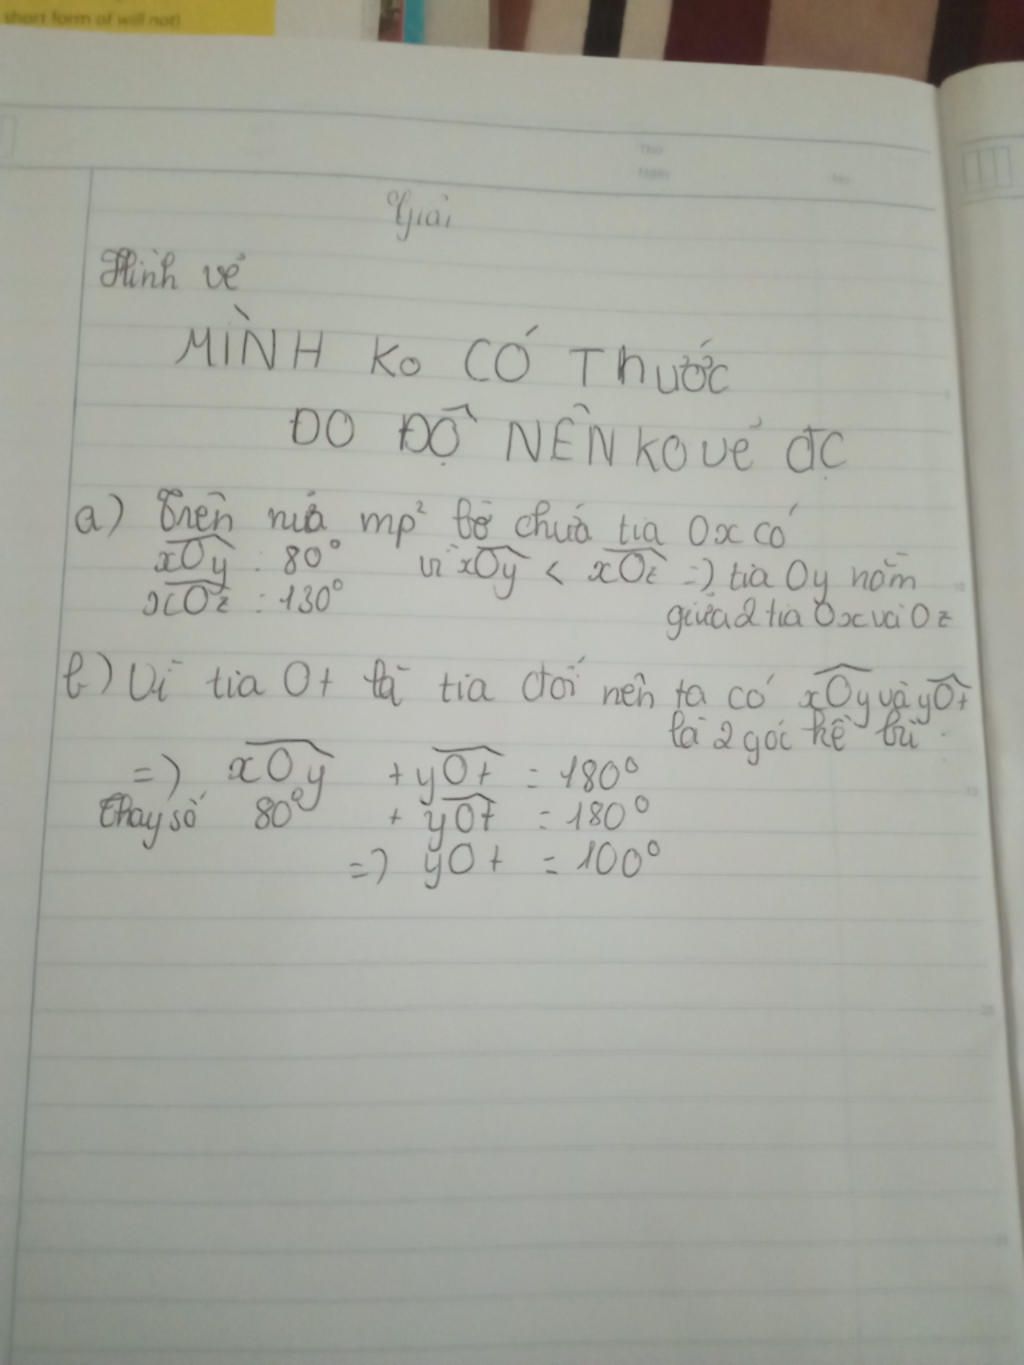 short form of will not)
Thứ
Ngày
No.
Giải
Hình vẽ
MÌNH Ko CÓ Thước
ĐO ĐỘ NÊN KO vẽ đc
a) Trên nửa mp² bờ chứa tia Ox có
xOy : 80° vì xOy < xOz => tia Oy nằm
xOz : 130° giữa 2 tia Ox và Oz
b) Vì tia Ot là tia đối nên ta có xOy và yOt
là 2 góc kề bù.
=> xOy + yOt = 180°
Thay số 80° + yOt = 180°
=> yOt = 100°